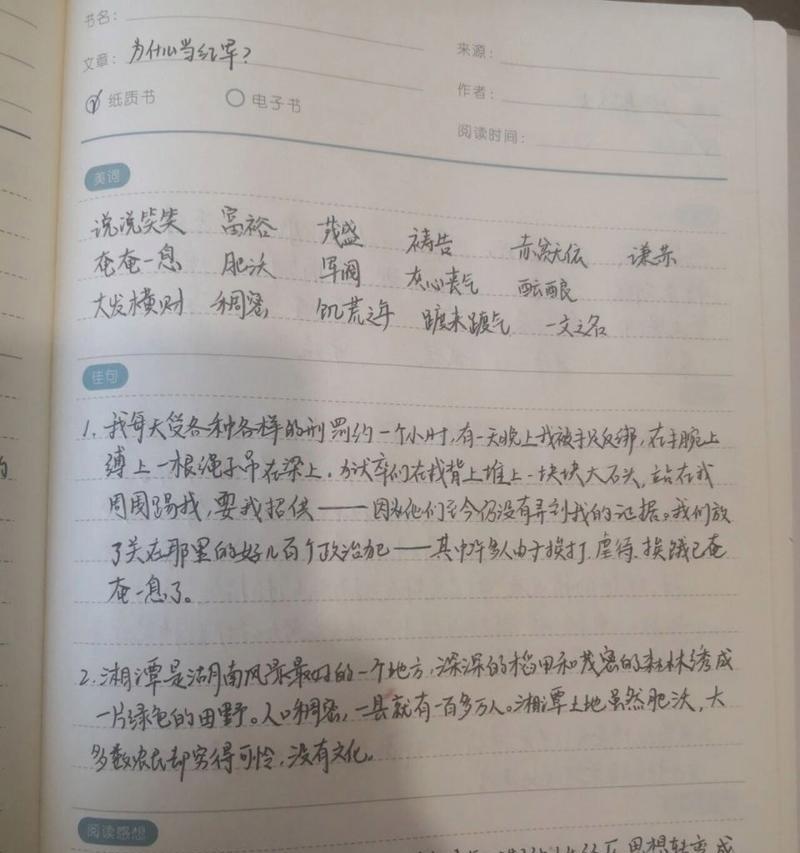 书名：
文章：为什么当红军？
来源：
纸质书 电子书
作者：
阅读时间：
美词
说说笑笑 富裕 茂盛 祷告 赤贫无依 谦恭
奄奄一息 肥沃 军阀 灰心丧气 酝酿
大发横财 稠密 饥荒之年 踱来踱气 一文之名
佳句
1. 我每天受各种各样的刑罚约一个小时,有一天晚上我被手足反绑,在手腕上
缚上一根绳子吊在梁上。狱卒们在我背上堆上一块块大石头,站在我
周围踢我,要我招供——因为他们至今仍没有弄到我的证据。我们放
了关在那里的好几百个政治犯——其中许多人由于挨打、虐待、挨饿已奄
奄一息了。
2. 湘潭是湖南风景最好的一个地方,深深的稻田和茂密的林绣成
一片绿色的田野。人口稠密,一县就有一百多万人。湘潭土地虽然肥沃,大
多数农民却穷得可怜,没有文化。
阅读感想
思想转变成